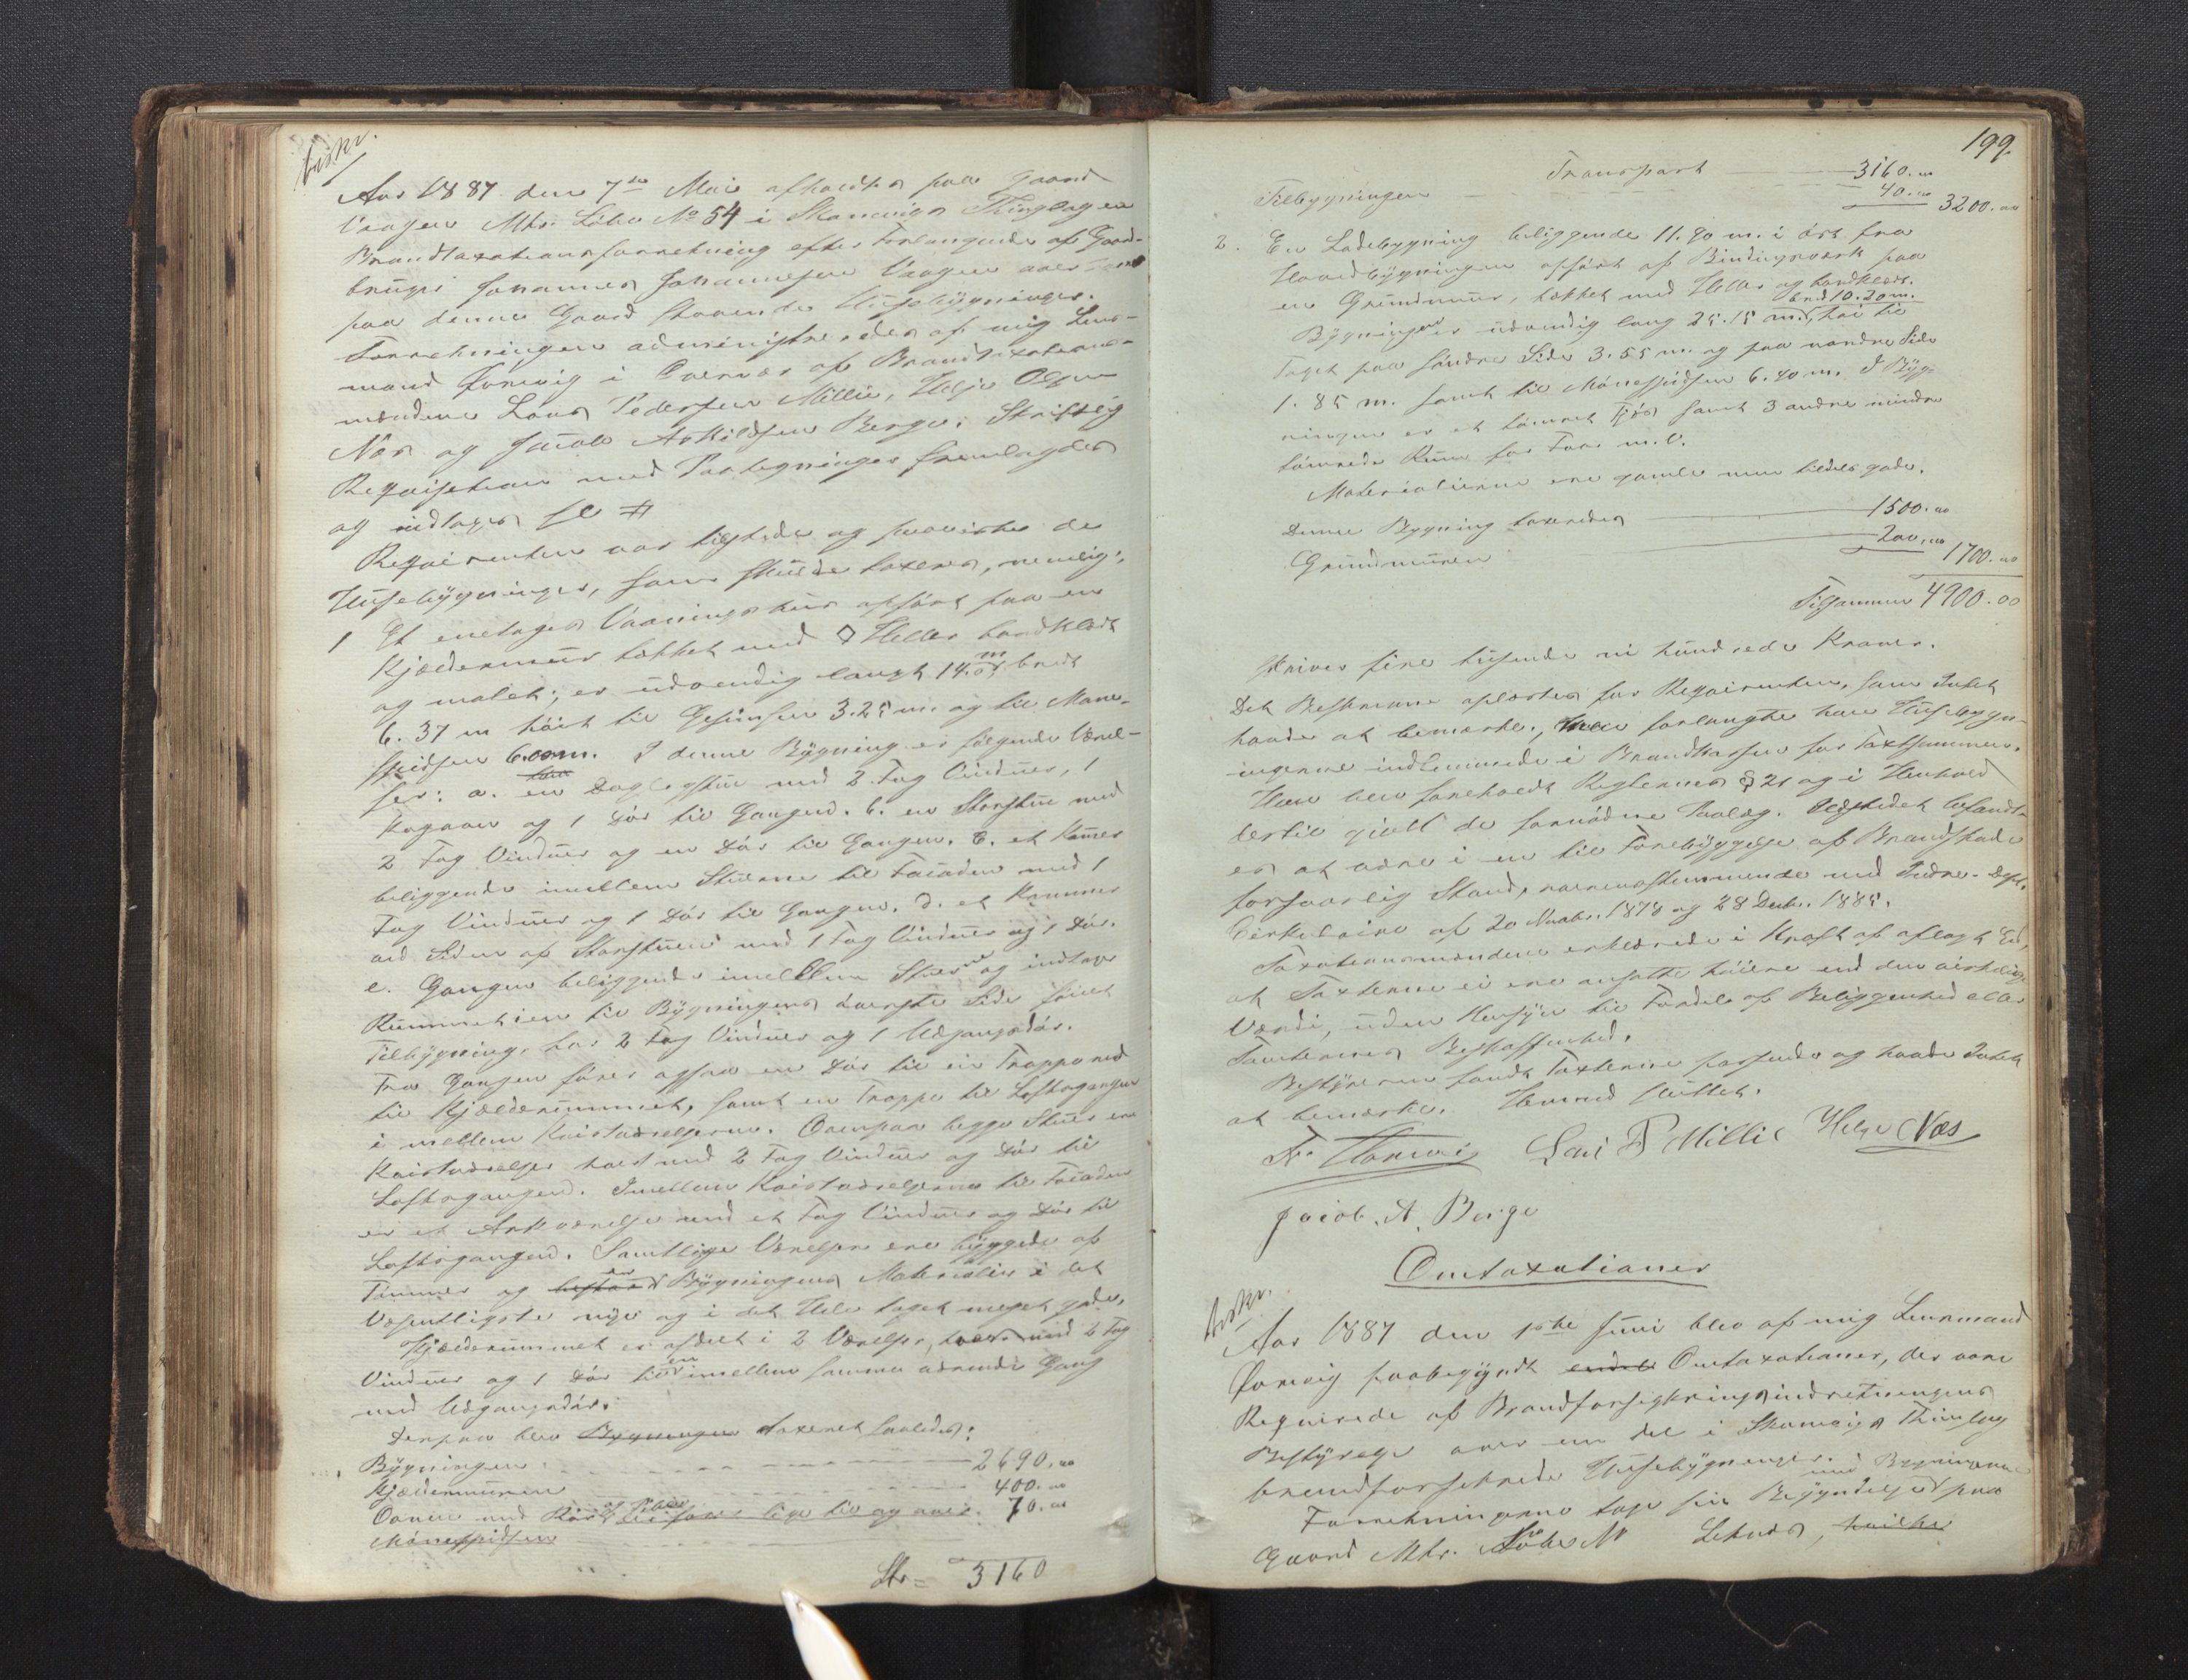 beskr.
Aar 1887 den 7de Mai afholdtes paa Gaard
Vaagen Mtr. Løbe No 54 i Skonevigs Thinglag en
Brandtaxationsforretning efter Forlangende af Gaard-
bruger Johannes Johannesen Vaagen over
paa denne Gaard staaende Husebygninger.
Forretningen administreredes af mig Lens-
mand Tomvig i Overvær af Brandtaxations-
mændene Lars Pedersen Millie, Helje Olsen
Næs og Jacob Askildsen Berge. Skriftlig
Reqvisition med Paategninger fremlagdes
og indtages s e #
Reqvirenten var tilstede og paaviste de
Husebygninger, som skulde taxeres, nemlig:
1 Et enetages Vaaningshus opført paa en
Kjældermuur tækket med Heller bordklædt
og malet; er udvendig langt 14.05 m bredt
6.37 m høit til Gesimsen 3.25 m. og til Møne-
spidsen 6.00 m. I denne Bygning er følgende Værel-
ser: a. en Dagligstue med 2 Fag Vinduer, 1
Kogeovn og 1 Dør til Gangen. b. en Storstue med
2 Fag Vinduer og en Dør til Gangen. c. et Kammer
beliggende imellem Stuerne til Facaden med 1
Fag Vinduer og 1 Dør til Gangen. d. et Kammer
ved Siden af Storstuen med 1 Fag Vinduer og 1 Dør.
e. Gangen beliggende imellem Stuerne og indtager
Rummet ien til Bygningens øverste Side føiet
Tilbygning, har 2 Fag Vinduer og 1 Udgangsdør.
Fra Gangen fører ogsaa en Dør til en Trappe ned
til Kjælderrummet, samt en Trappe til Loftsgangen
i mellem Kvistværelserne. Ovenpaa begge Stuer ere
Kvistværelser hvert med 2 Fag Vinduer og Dør til
Loftsgangen. Imellem Kvistværelserne til Facaden
er et Arkværelse med et Fag Vinduer og Dør til
Loftsgangen. Samtlige Værelser ere byggede af
Tømmer og bestaar er Bygningens Materialier i det
Væsentligste nye og i det Hele taget meget gode.
Kjælderrummet er afdelt i 2 Værelser, hvert med 2 Fag
Vinduer og 1 Dør til en imellem samme værende Gang
med Udgangsdør.
Derpaa blev Bygningen taxeret saaledes:
Bygningen 2690.00
Kjældermuren 400.00
Ovnen med Rør af Piben lige til og over 70.00
Mønespidsen
Ltr= 3160
199.
Transport 3160.00
Tilbygningen 40.00 3200.00
2. En Ladebygning beliggende 11.90 m. i øst fra
Hovedbygningen opført af Bindingsværk paa
en Grundmuur, tækket med Heller og bordklædt.
Bygningen er udvendig lang 25.15 m. bred 10.20 m. høi til
Taget paa søndre Side 3.55 m. og paa nordre Side
1.85 m. samt til Mønespidsen 6.40 m. I Byg-
ningen er et tømret Fjøs samt 3 andre mindre
tømrede Rum for Faar m.v.
Materialierne ere gamle men tildels gode.
Denne Bygning taxeredes 1500.00
Grundmuren 200.00 1700.00
Tilsammen 4900.00
skriver fire tusende ni hundrede Kroner.
Det Beskrevne oplæstes for Reqvirenten, som Intet
havde at bemærke, men forlangte han Husebygn-
ingerne indlemmede i Brandkassen for Taxtsummen.
Han blev foreholdt Reglernes § 21 og i Henhold
dertil gjort de fornødne Paalæg. Ildstedet befandt-
es at være i en til Forebyggelse af Brandskade
forsvarlig Stand, overensstemmende med Indre-Dept.
Cirkulaire af 20 Novbr. 1878 og 28 Decb. 1885.
Taxationsmændene erklærede i Kraft af aflagt Ed,
at Taxterne ei ere ansatte høiere end den virkelige
Værdi, uden Hensyn til Fordel af Beliggenhed eller
Tomternes Beskaffenhed.
Bestyreren fandt Taxterne passende og havde Intet
at bemærke. Hermed sluttet.
Lars P Millie Helge Næs
Jacob. A. Berge
Omtaxationer
beskr.
Aar 1887 den 1ste Juni blev af mig Lensmand
Tomvig paabegyndt endel Omtaxationer, der vare
Reqvirede af Brandforsikringsindretningens
Bestyrelse over en del i Skonevigs Thinglag
brandforsikrede Husebygninger.
Forretningerne tage sin Begyndelse med Bygningerne paa
Gaard Mtr. Løbe No Leknæs, hvilke